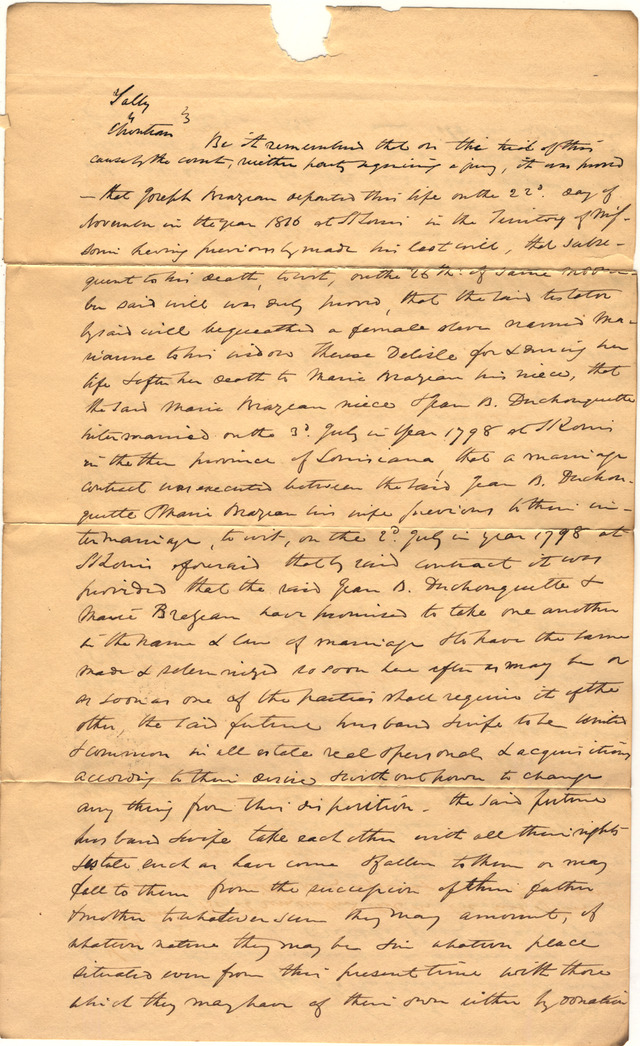 Sally
vs }
Chouteau
Be it remembered that on the trial of this
cause by the court, neither party requiring a jury, it was proved
— that Joseph Brazeau departed this life on the 22d. day of
November in the year 1816 at St Louis in the Territory of Mis-
souri having previously made his last will, that subse-
quent to his death, to wit, on the 26th. of same
said will was duly proved, that the said testator
by said will bequeathed a female slave named Ma-
rianne to his widow Therese Delisle for & during her
life & after her death to Marie Brazeau his niece, that
the said Marie Brazeau niece & Jean B. Duchouquette
intermarried on the 3d. July in year 1798 at St Louis
in the then province of Louisiana, that a marriage
contract was executed between the said Jean B. Duchou-
quette & Marie Brazeau his wife previous to their in-
termarriage, to wit, on the 2d. July in year 1798 at
St Louis aforesaid that by said contract it was
provided that the said Jean B. Duchouquette &
Marie Brazeau have promised to take one another
in the name & law of marriage & to have the same
made & solemnized so soon here after as may be or
as soon as one of the parties shall require it of the
other, the said future husband & wife to be united
& common in all estate real & personal & acquisitions
according to their desire & without power to change
any thing from this disposition – the said future
husband & wife take each other with all their rights
& estate such as have come & fallen to them or may
fall to them from the succession of their father
& mother to whatever sum they may amount, of
whatever nature they may be & in whatever place
situated even from this present time with those
which they may have of their own either by donation